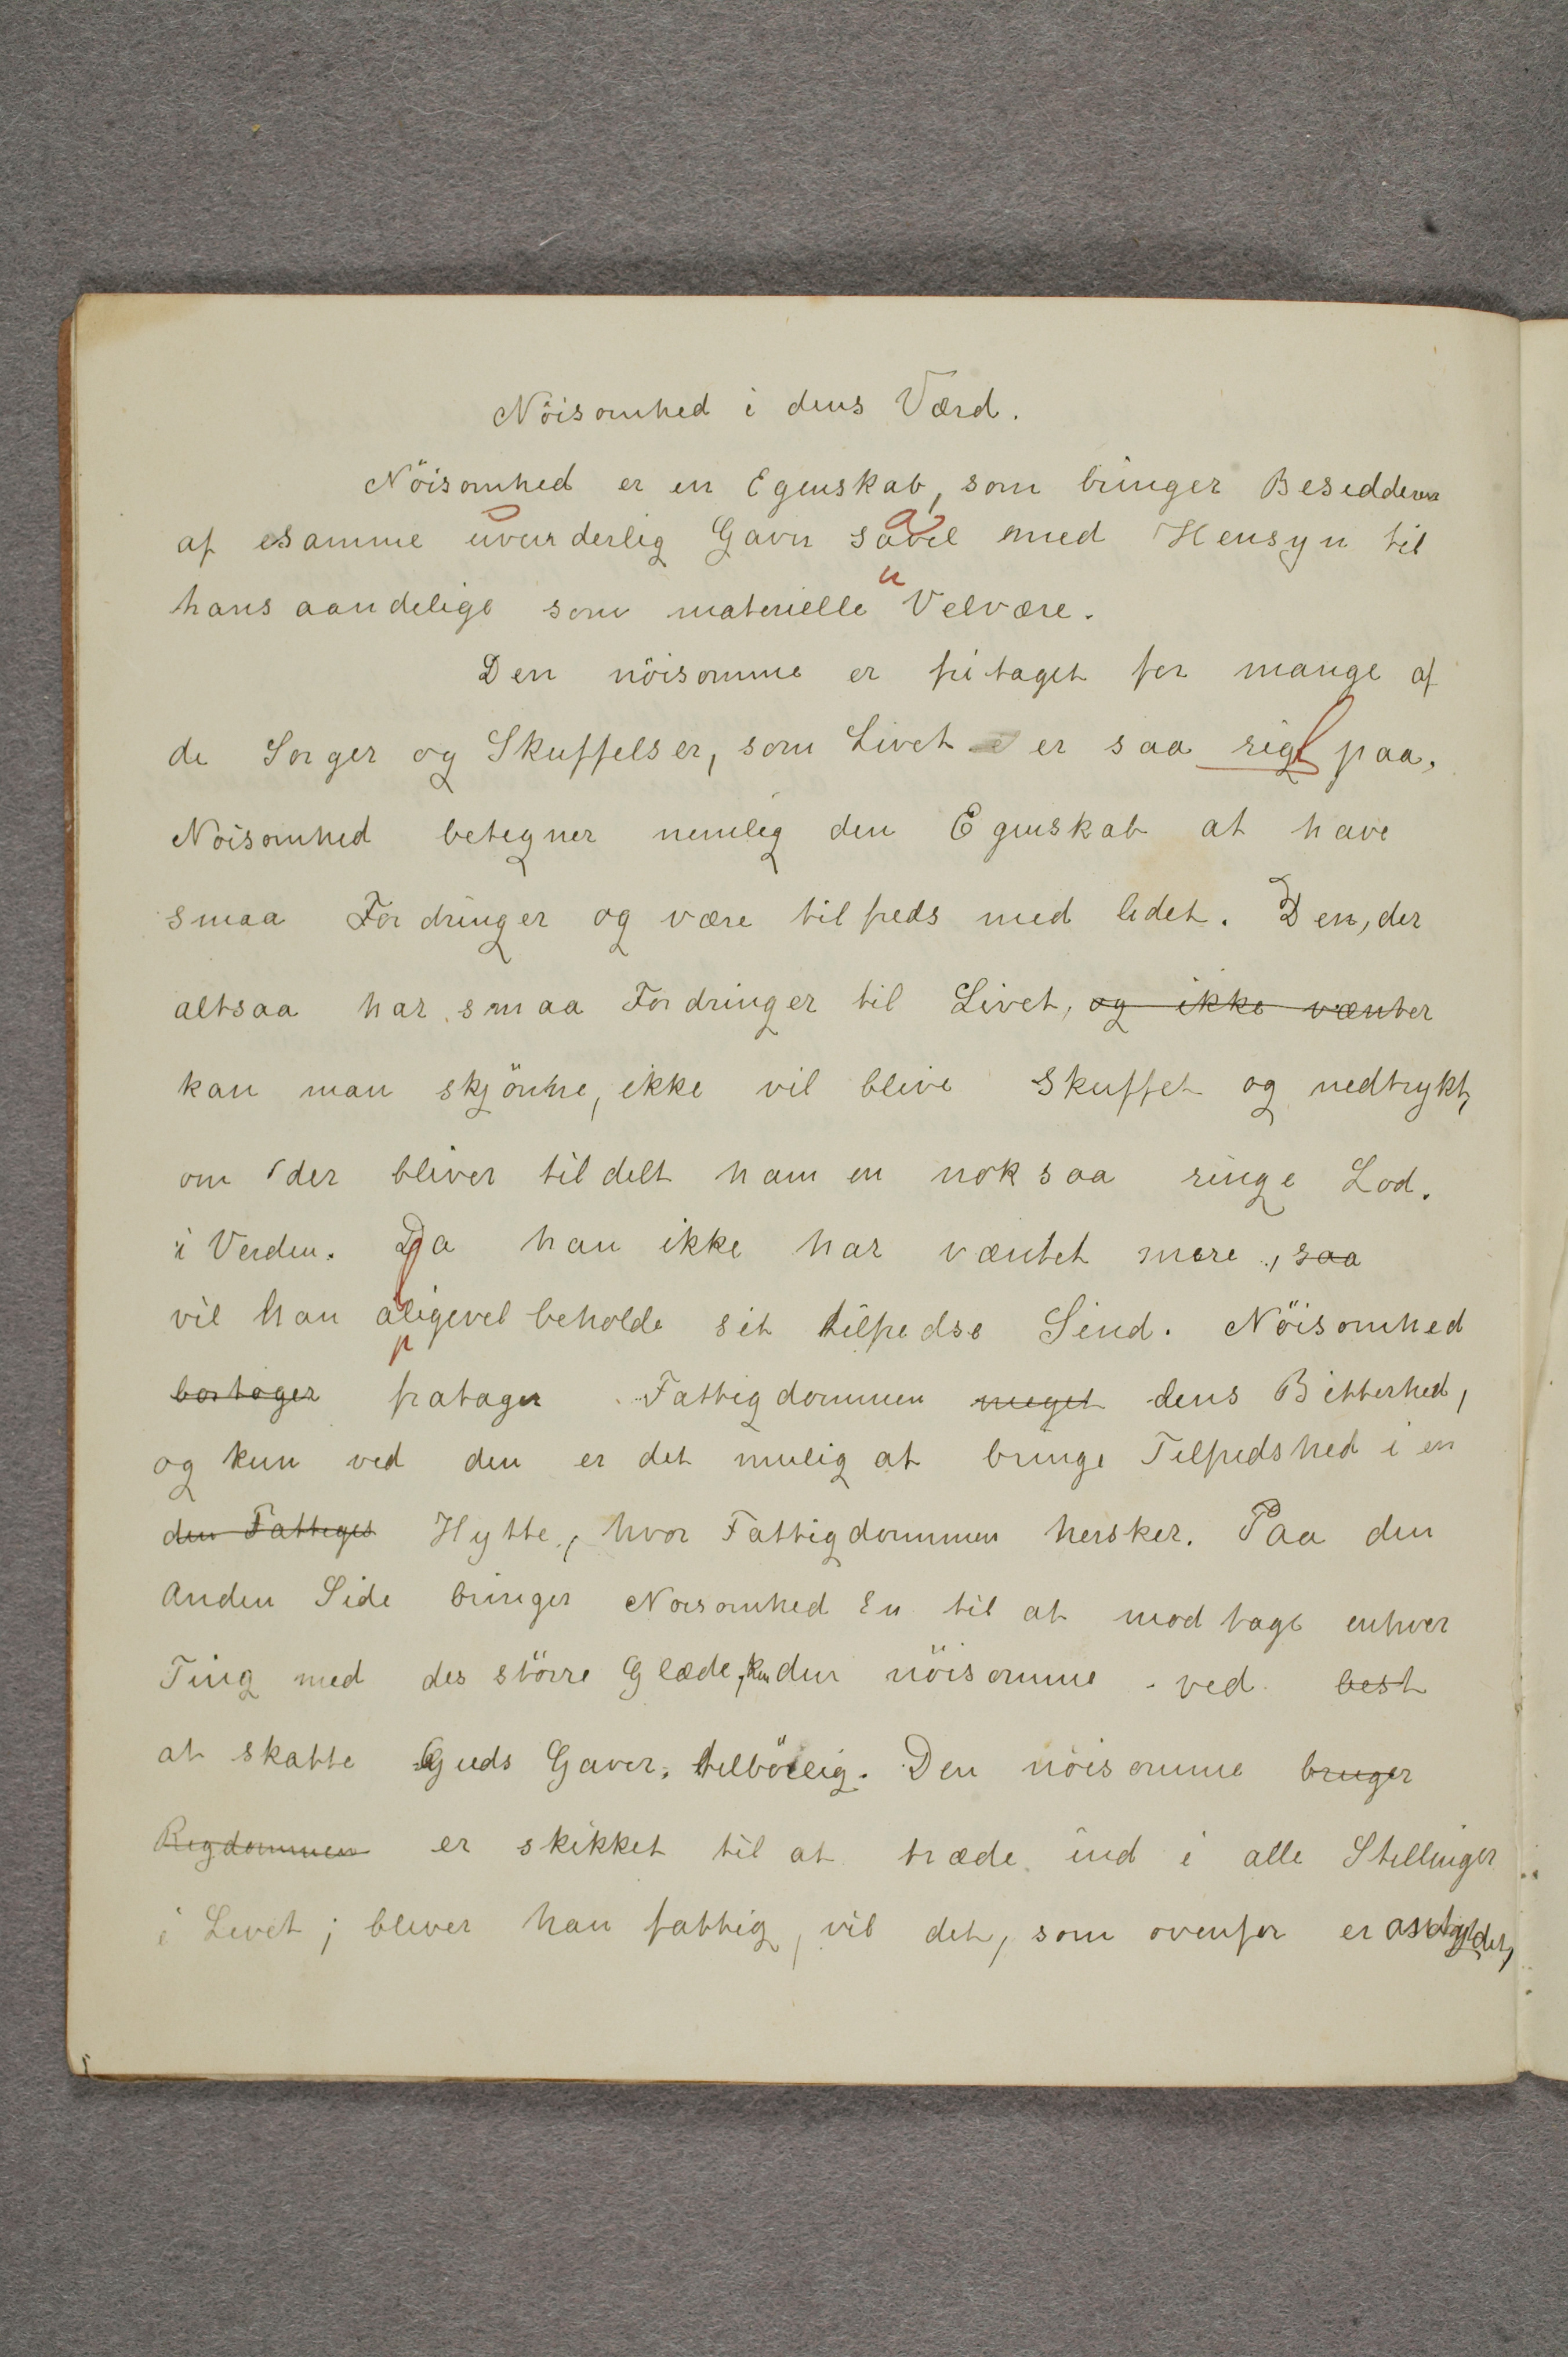 Nöisomhed i dens Værd.
Nöisomhed er en Egenskab, som bringer Besidderen
af samme uvurderlig Gavn såvel med Hensyn til
hans aandelige som materielle Velvære.
Den nöisomme er fritaget for mange af
de Sorger og Skuffelser, som Livet er saa rigt paa,
Nöisomhed betegner nemlig den Egenskab at have
smaa Fordringer og være tilfreds med lidet. Den, der
altsaa har smaa Fordringer til Livet, og ikke vænter
kan man skjönne, ikke vil blive skuffet og nedtrykt,
om der bliver tildelt ham en nok saa ringe Lod.
i Verden. Da han ikke har væntet mere, saa
vil han aligevel beholde sit tilfredse Sind. Nöisomhed
bortager fratager Fattigdommen meget dens Bitterhed,
og kun ved den er det mulig at bringe Tilfredshed i en
den Fattiges Hytte, hvor Fattigdommen hersker. Paa den
Anden Side bringer Nöisomhed En til at modtage enhver
Ting med des större Glæde, kun den nöisomme ved best
at skatte Guds Gaver, tilbörlig. Den nöisomme bruger
Rigdommen er skikket til at træde ind i alle Stillinger
i Livet; bliver han fattig, vil det, som ovenfor er